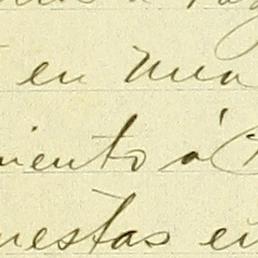 en una
miento á
nestas en